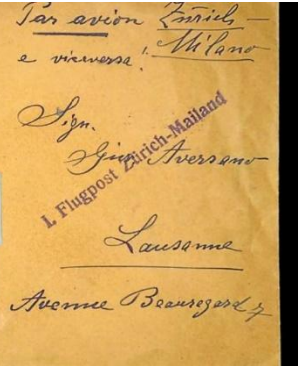 Par avion Zürich-
Milano
e viceversa!
Sign.
Gius. Aversano
I. Flugpost Zürich-Mailand
Lausanne
Avenue Beauregard 7